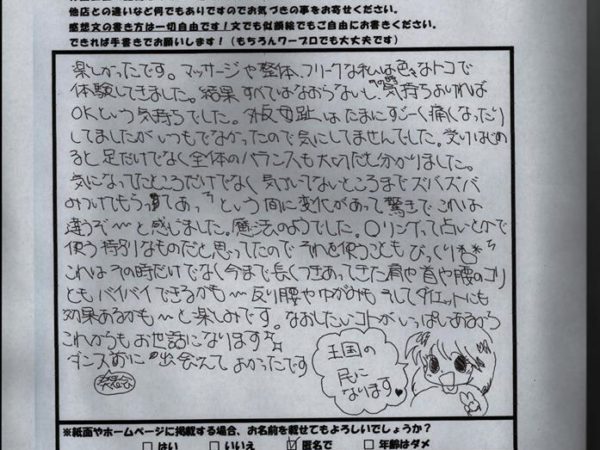 他店との違いなど何でもありですのでお気づきの事をお寄せください。
感想文の書き方は一切自由です！文でも似顔絵でもご自由にお書きください。
できれば手書きでお願いします！（もちろんワープロでも大丈夫です）
楽しかったです。マッサージや整体、フリークな私は色々なトコで
体験してきました。結果 すべてはなおらないし、気持ちよければ
OKという気持ちでした。外反母趾はたまにすごーく痛くなったり
してましたがいつもでなかったので気にしてませんでした。受けはじめ
ると足だけでなく全体のバランスも大切だと分かりました。
気になってたところだけでなく気づいてないところまでズバズバ
みつけてもらって あっ という間に変化があって驚きでこれは
違うぞ〜と感じました。魔法のようでした。Oリングって占いとかで
使う特別なものだと思ってたので それを使うことも びっくり
これは その時だけでなく今まで長くつきあってきた肩や首や腰のコリ
ともバイバイできるかも〜 反り腰やゆがみも そしてダイエットにも
効果あるかも〜と楽しみです。なおしたいコトがいっぱいあるから
これからもお世話になります
ダンス前に 出会えて よかったです
王国の
民に
なります
※紙面やホームページに掲載する場合、お名前を載せてもよろしいでしょうか？
□はい □いいえ ☑匿名で □年齢はダメ